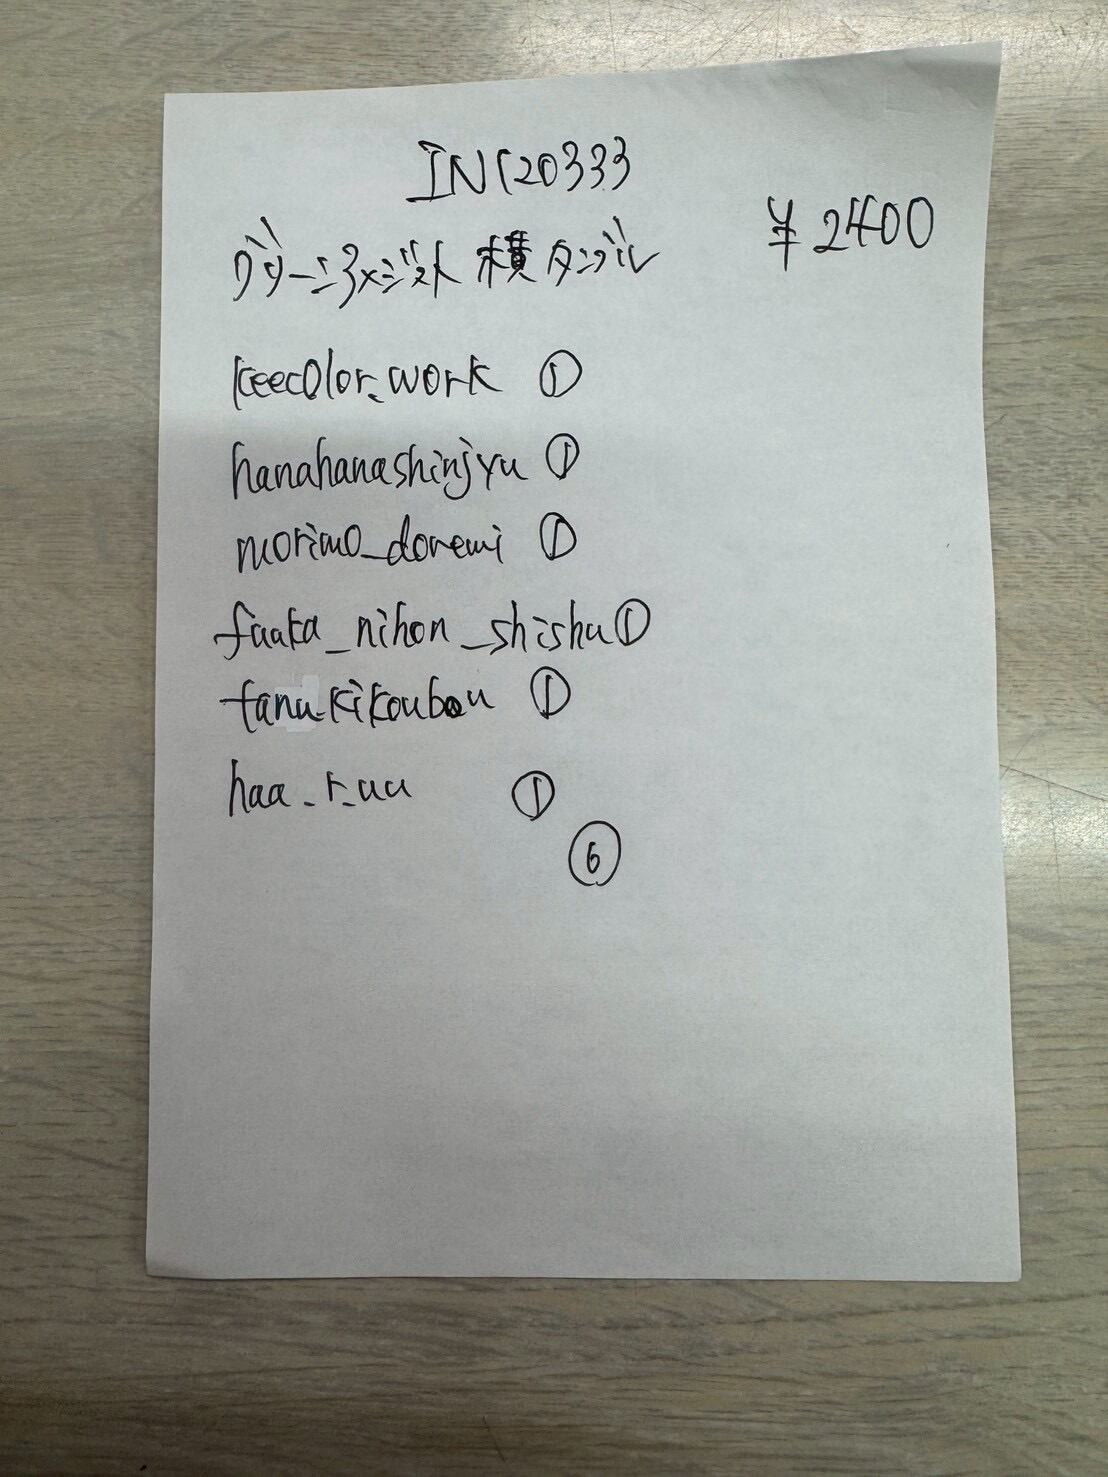 INC20333
¥2400
グリーンアメジスト 横タンブル
keecolor_work ①
hanahanashinjyu ①
morimo_doremi ①
faaka_nihon_shisha ①
tanukikoubou ①
haa_r_uu ①
⑥